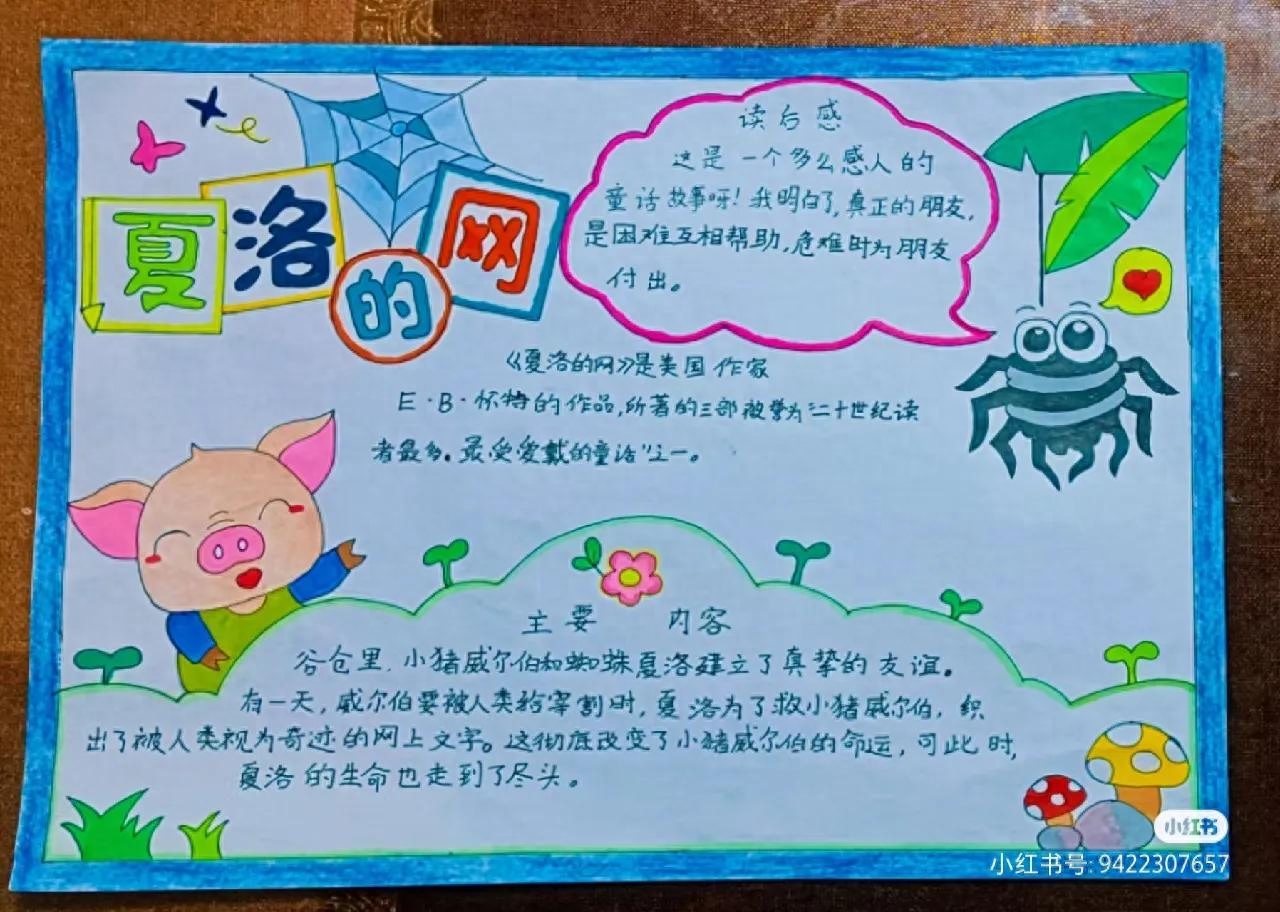 夏洛的网
读后感
这是一个多么感人的
童话故事呀!我明白了,真正的朋友,
是困难互相帮助,危难时为朋友
付出。
《夏洛的网》是美国作家
E·B·怀特的作品,所著的三部被誉为“二十世纪读
者最多。最受爱戴的童话”之一。
主要 内容
谷仓里.小猪威尔伯和蜘蛛夏洛建立了真挚的友谊。
有一天,威尔伯要被人类给宰割时,夏洛为了救小猪威尔伯,织
出了被人类视为奇迹的网上文字。这彻底改变了小猪威尔伯的命运,可此时,
夏洛的生命也走到了尽头。
小红书
小红书号:9422307657